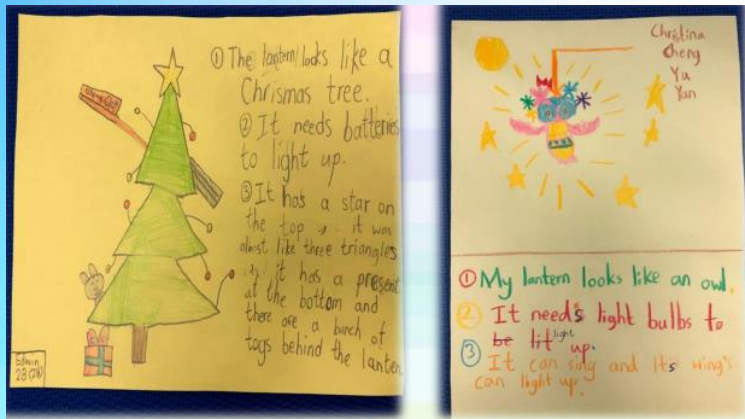 ① The lantern looks like a
Chrismas tree.
② It needs batteries
to light up.
③ It has a star on
the top it was
almost like three triangles
it has a present
at the bottom and
there are a bunch of
toys behind the lanten
Edwin
2B
Christina
Cheng
Ya
Yan
① My lantern looks like an owl.
② It needs light bulbs to
be lit light up.
③ It can sing and its wing's
can light up.